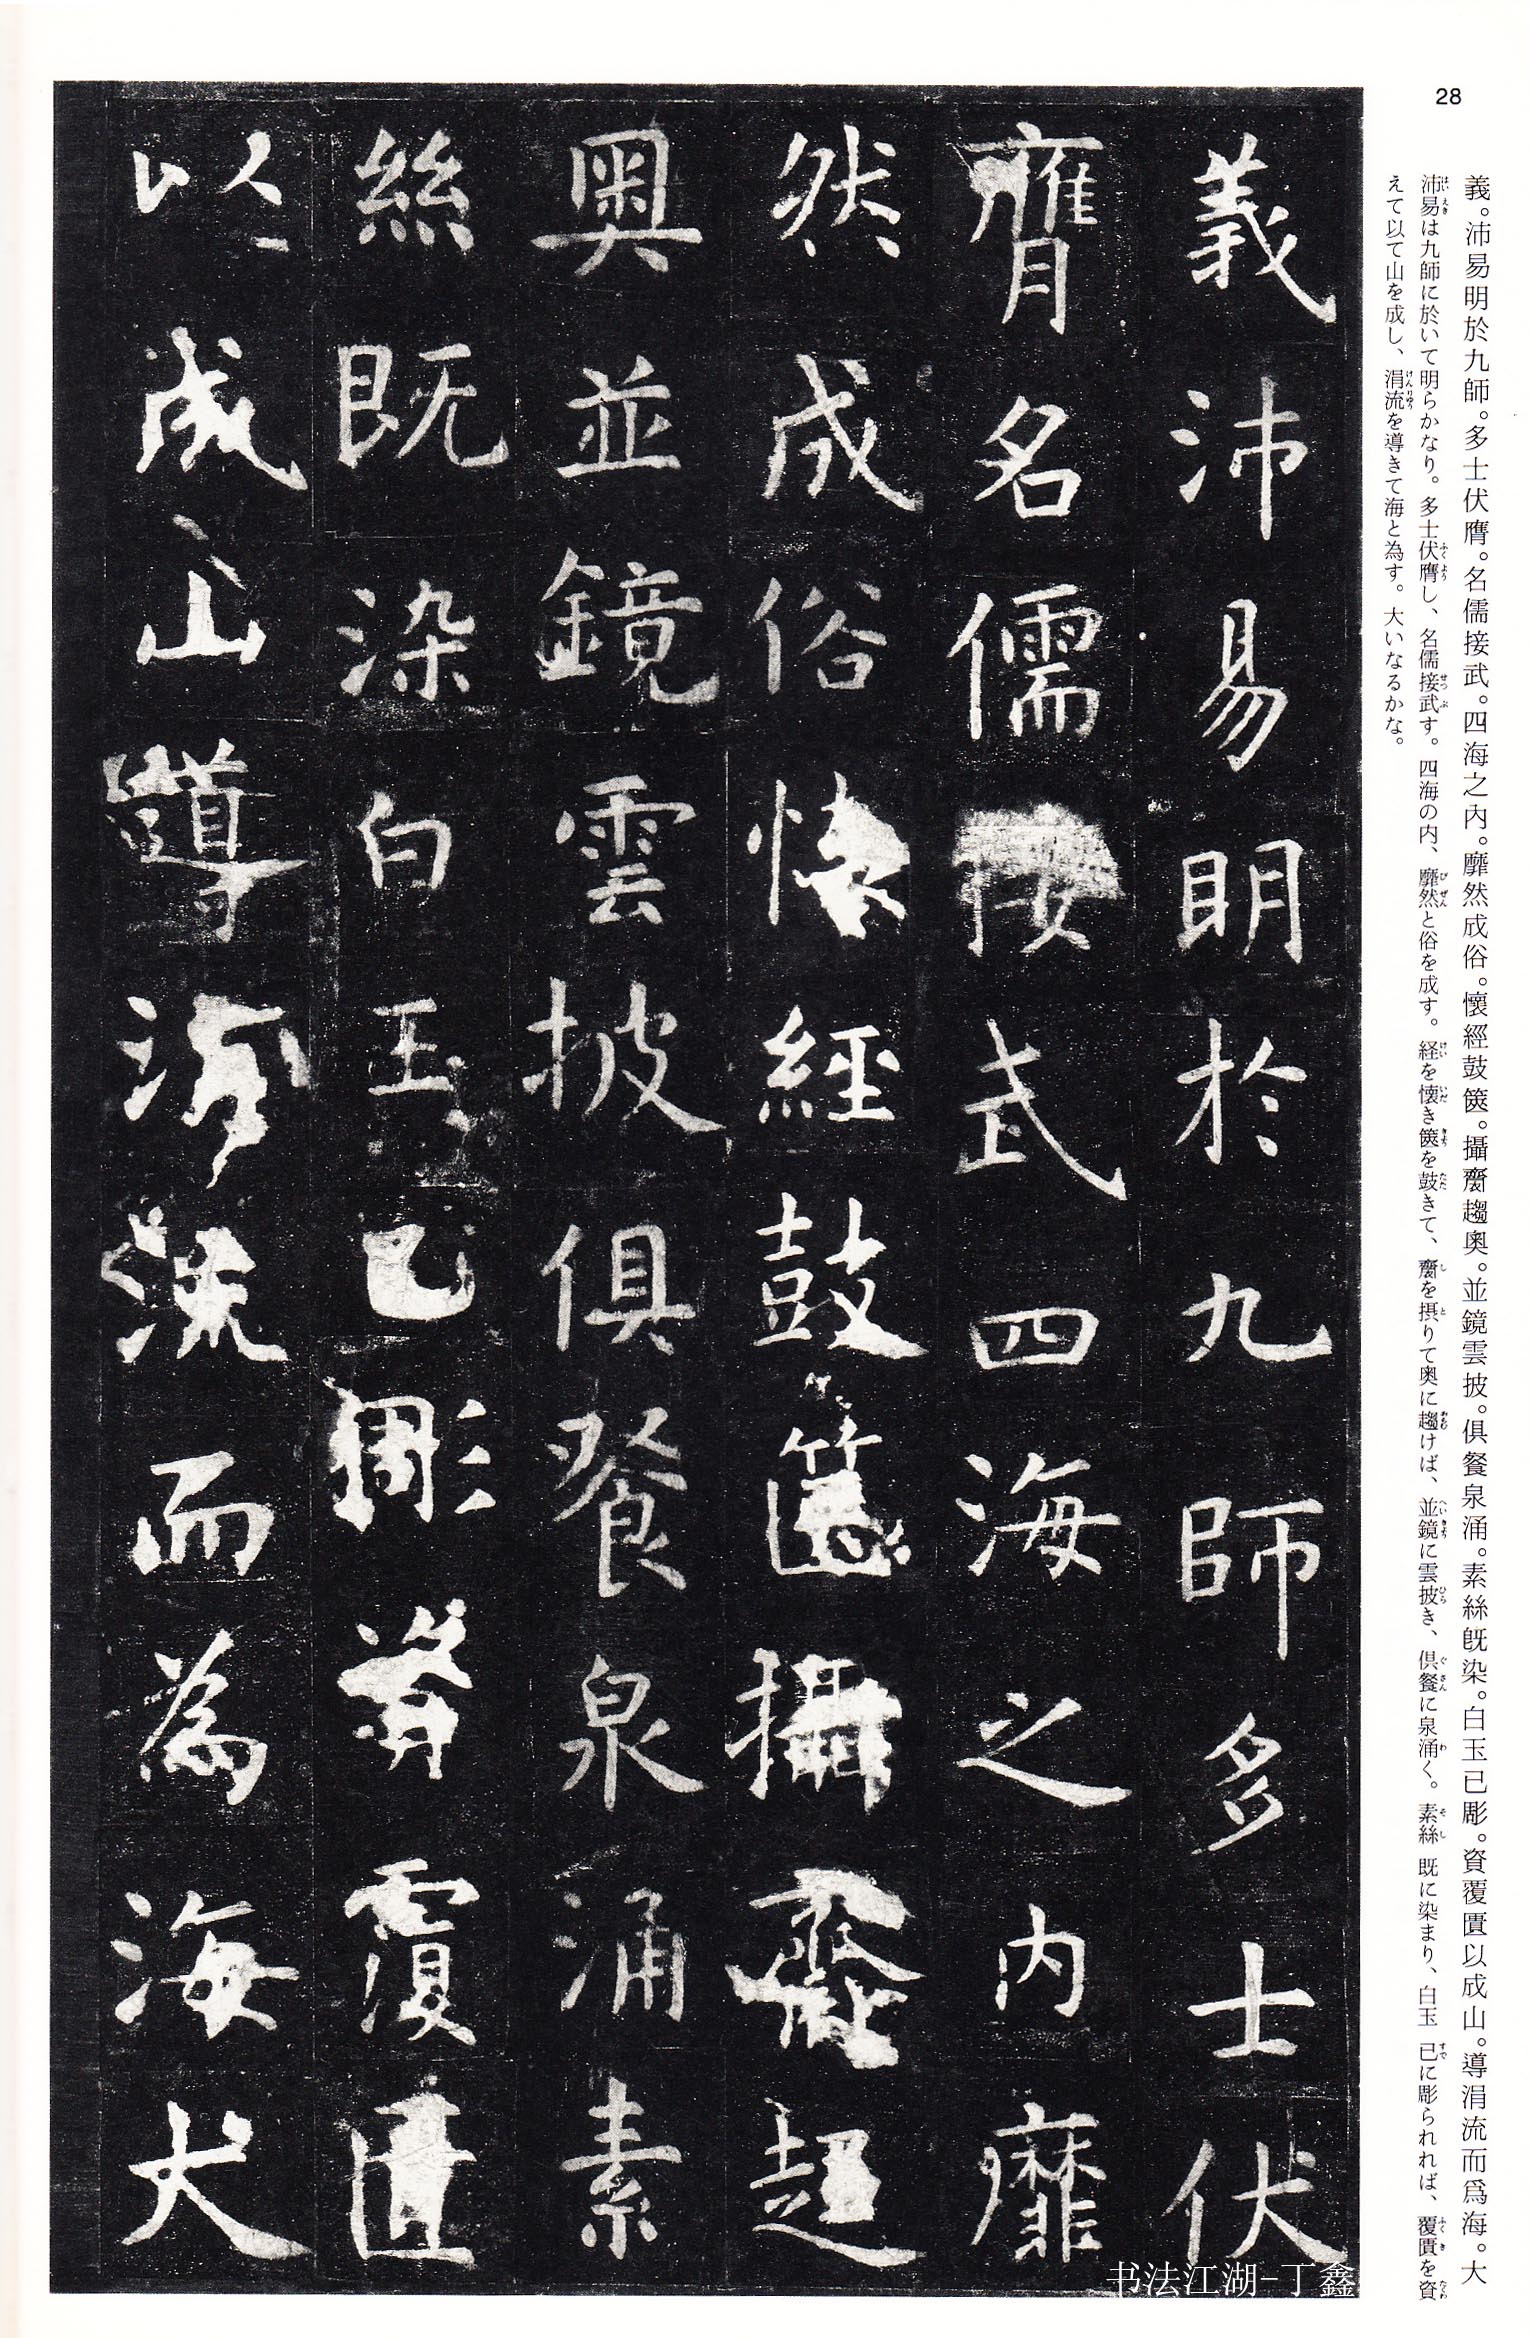 28
義。沛易明於九師。多士伏膺。名儒接武。四海之內。靡然成俗。懷經鼓篋。攝齋趨奧。並鏡雲披。俱餐泉涌。素絲旣染。白玉已彫。資覆匱以成山。導涓流而爲海。大
沛易は九師に於いて明らかなり。多士伏膺し、名儒接武す。四海の内、靡然と俗を成す。経を懐き篋を鼓きて、齋を摂りて奥に趨けば、並鏡に雲披き、倶餐に泉涌く。素絲既に染まり、白玉已に彫られれば、覆匱を資
えて以て山を成し、涓流を導きて海と為す。大いなるかな。
義沛易明於九師多士伏
膺名儒接武四海之内靡
然成俗懷經鼓篋攝齋趨
奥並鏡雲披俱餐泉涌素
絲既染白玉已彫資覆匱
以成山導涓流而為海大
书法江湖-丁鑫